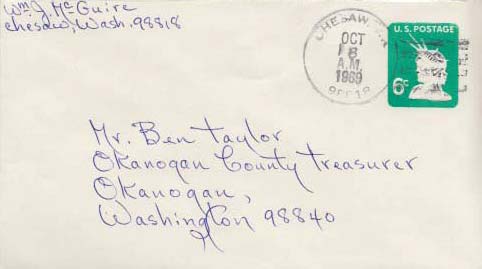 Wm J McGuire
Chesaw, Wash. 98818
CHESAW, WA
OCT
6
A.M.
1969
98818
U.S. POSTAGE
6¢
Mr. Ben Taylor
Okanogan County Treasurer
Okanogan,
Washington 98840